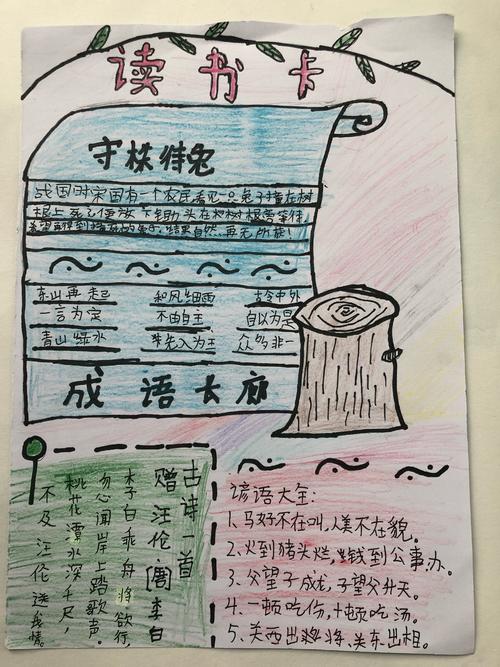 读书卡
守株待兔
战国时宋国有一个农民看见一只兔子撞在树
根上死了便放下锄头在树根旁等待,
希望再得到撞死的兔子,结果自然再无所获!
东山再起 和风细雨 古今中外
一言为定 不由自主 自以为是
青山绿水 先入为主 众多非一
成语长廊
古诗一首
赠汪伦 [唐] 李白
李白乘舟将欲行,
勿心闻岸上踏歌声。
桃花潭水深千尺,
不及汪伦送我情。
谚语大全:
1、马好不在叫,人美不在貌。
2、火到猪头烂,钱到公事办。
3、父望子成龙,子望父升天。
4、一顿吃伤,十顿吃汤。
5、关西出将、关东出相。